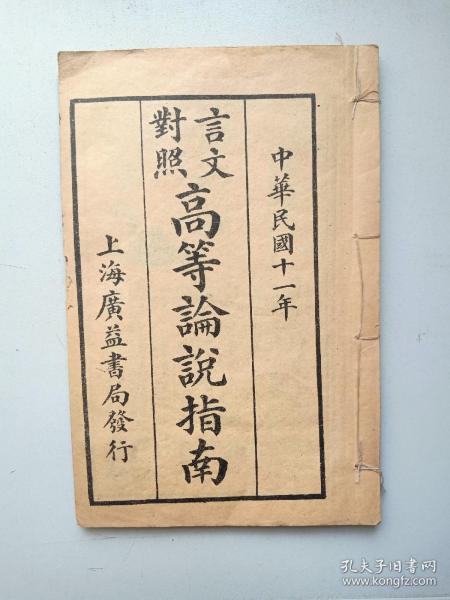 中華民國十一年
言文
對照
高等論說指南
上海廣益書局發行
孔夫子旧书网
www.kongfz.com